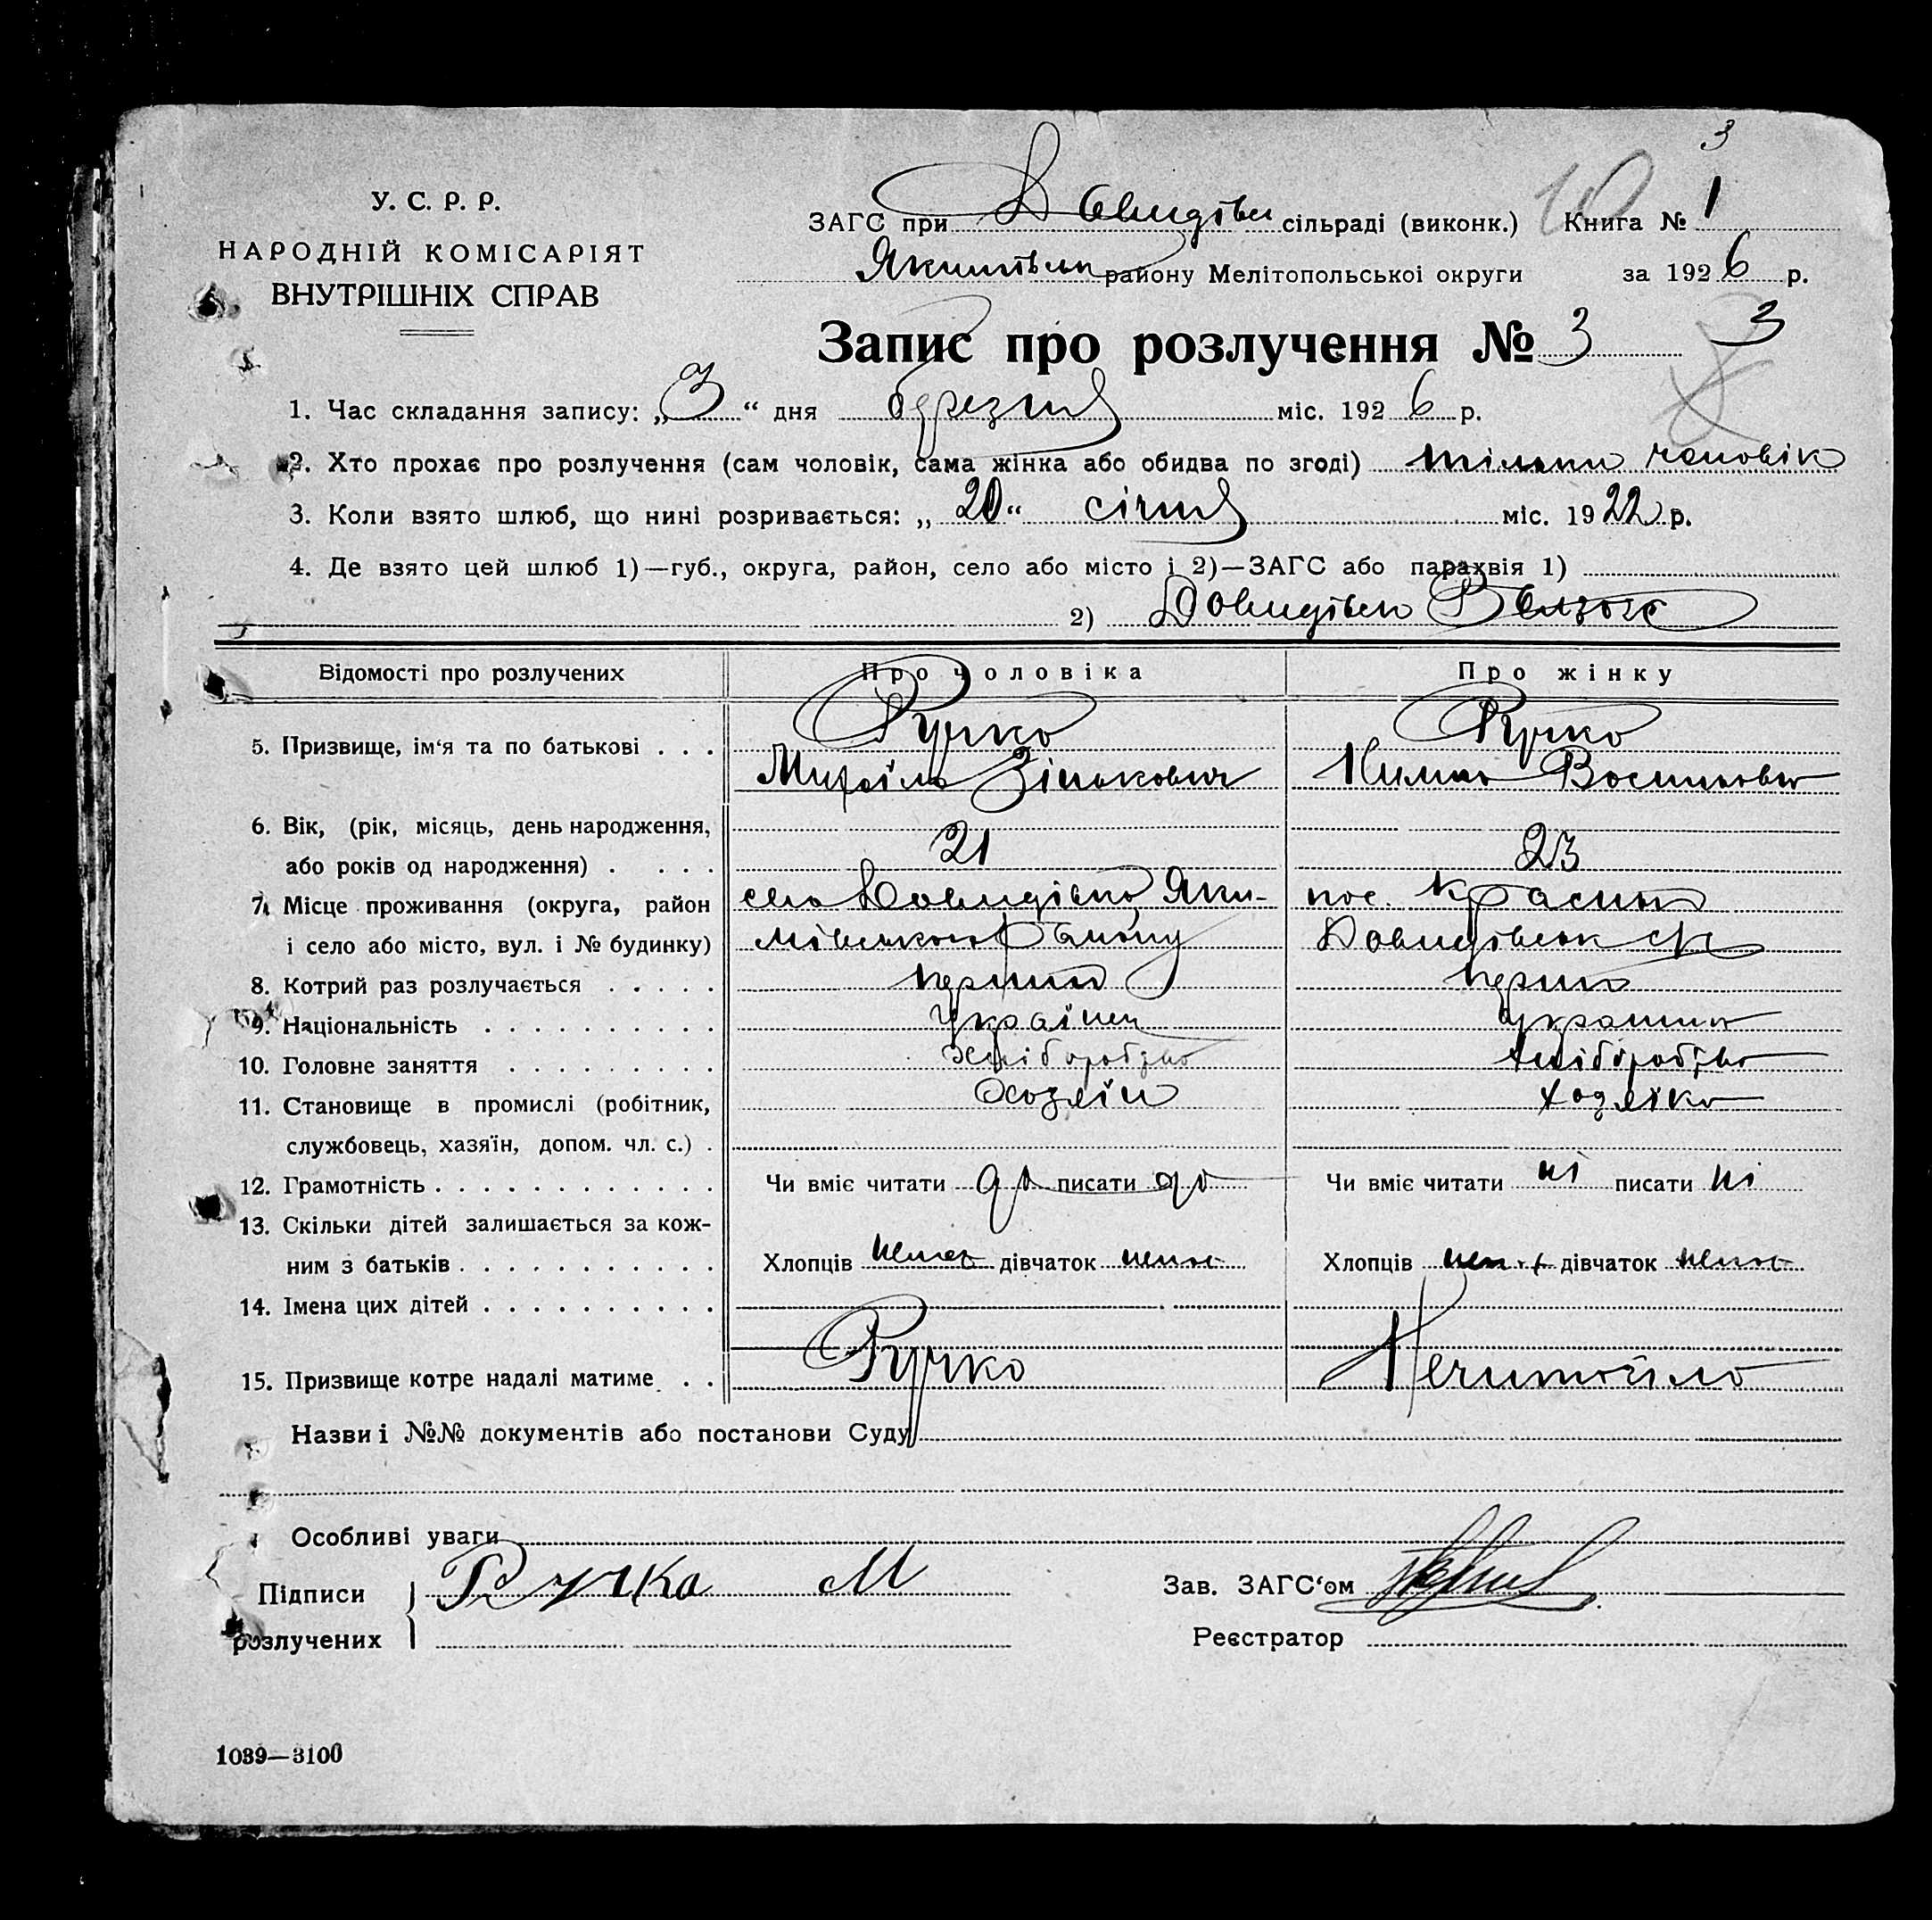 3
У. С. Р. Р.
НАРОДНІЙ КОМІСАРІЯТ
ВНУТРІШНІХ СПРАВ
ЗАГС при сільраді (виконк.) 10 Книга № 1
району Мелітопольської округи за 1926 р.
Запис про розлучення № 3 3
1. Час складання запису: „3“ дня березня міс. 1926 р.
2. Хто прохає про розлучення (сам чоловік, сама жінка або обидва по згоді) тільки чоловік
3. Коли взято шлюб, що нині розривається: „20“ січня міс. 1922 р.
4. Де взято цей шлюб 1)—губ., округа, район, село або місто і 2)—ЗАГС або парахвія 1)
2) Давидівськ
Відомості про розлучених Про чоловіка Про жінку
5. Призвище, ім‘я та по батькові . . . Ручко Ручко
Михайло Зінькович
6. Вік, (рік, місяць, день народження,
або років од народження) . . . . 21 23
7. Місце проживання (округа, район село Давидівка Яки- пос.
і село або місто, вул. і № будинку) мівського району Давидівськ с/р
8. Котрий раз розлучається . . . . . перший перша
9. Національність . . . . . . . . . . українец украинка
10. Головне заняття . . . . . . . . . хліборобство хліборобство
11. Становище в промислі (робітник, хозяїн хозяїка
службовець, хазяїн, допом. чл. с.) .
12. Грамотність . . . . . . . . . . . . Чи вміє читати да писати да Чи вміє читати ні писати ні
13. Скільки дітей залишається за кож-
ним з батьків . . . . . . . . . . . Хлопців немає дівчаток немає Хлопців немає дівчаток немає
14. Імена цих дітей . . . . . . . . . .
15. Призвище котре надалі матиме . . Ручко Нечитайло
Назви і №№ документів або постанови Суду
Особливі уваги
Підписи Ручка М Зав. ЗАГС‘ом
розлучених Реєстратор
1039—3100